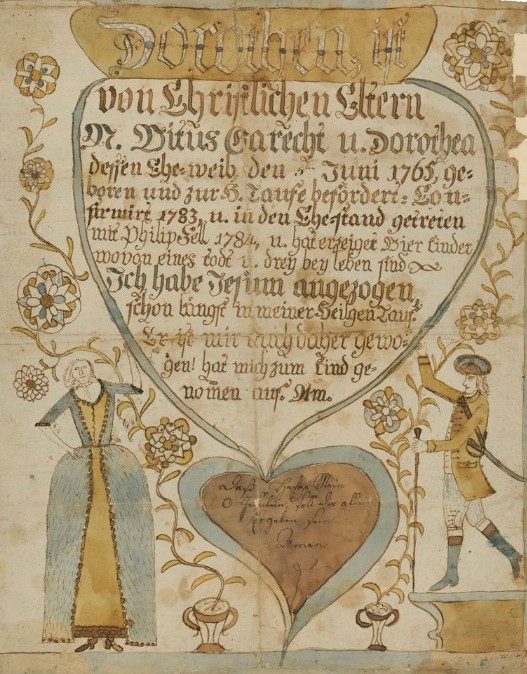 Dorothea, ist
von Christlichen Eltern
M. Vitus Garecht u. Dorothea
dessen Ehe-weib, den 5 Juni 1765, ge-
boren und zur H. Taufe befördert: Con-
firmirt 1783, u. in den Ehestand getreten
mit Philip Fell 1784, u. hat erzeiget Vier kinder
wovon eines todt u. drey bey leben sind
Ich habe Jesum angezogen,
schon längst in meiner Heilgen Tauf.
Er ist mir auch daher gewo-
gen! hat mich zum kind ge-
nomen auf.
Daß Herze Mein
O soll dir allein
ergeben sein
Amen